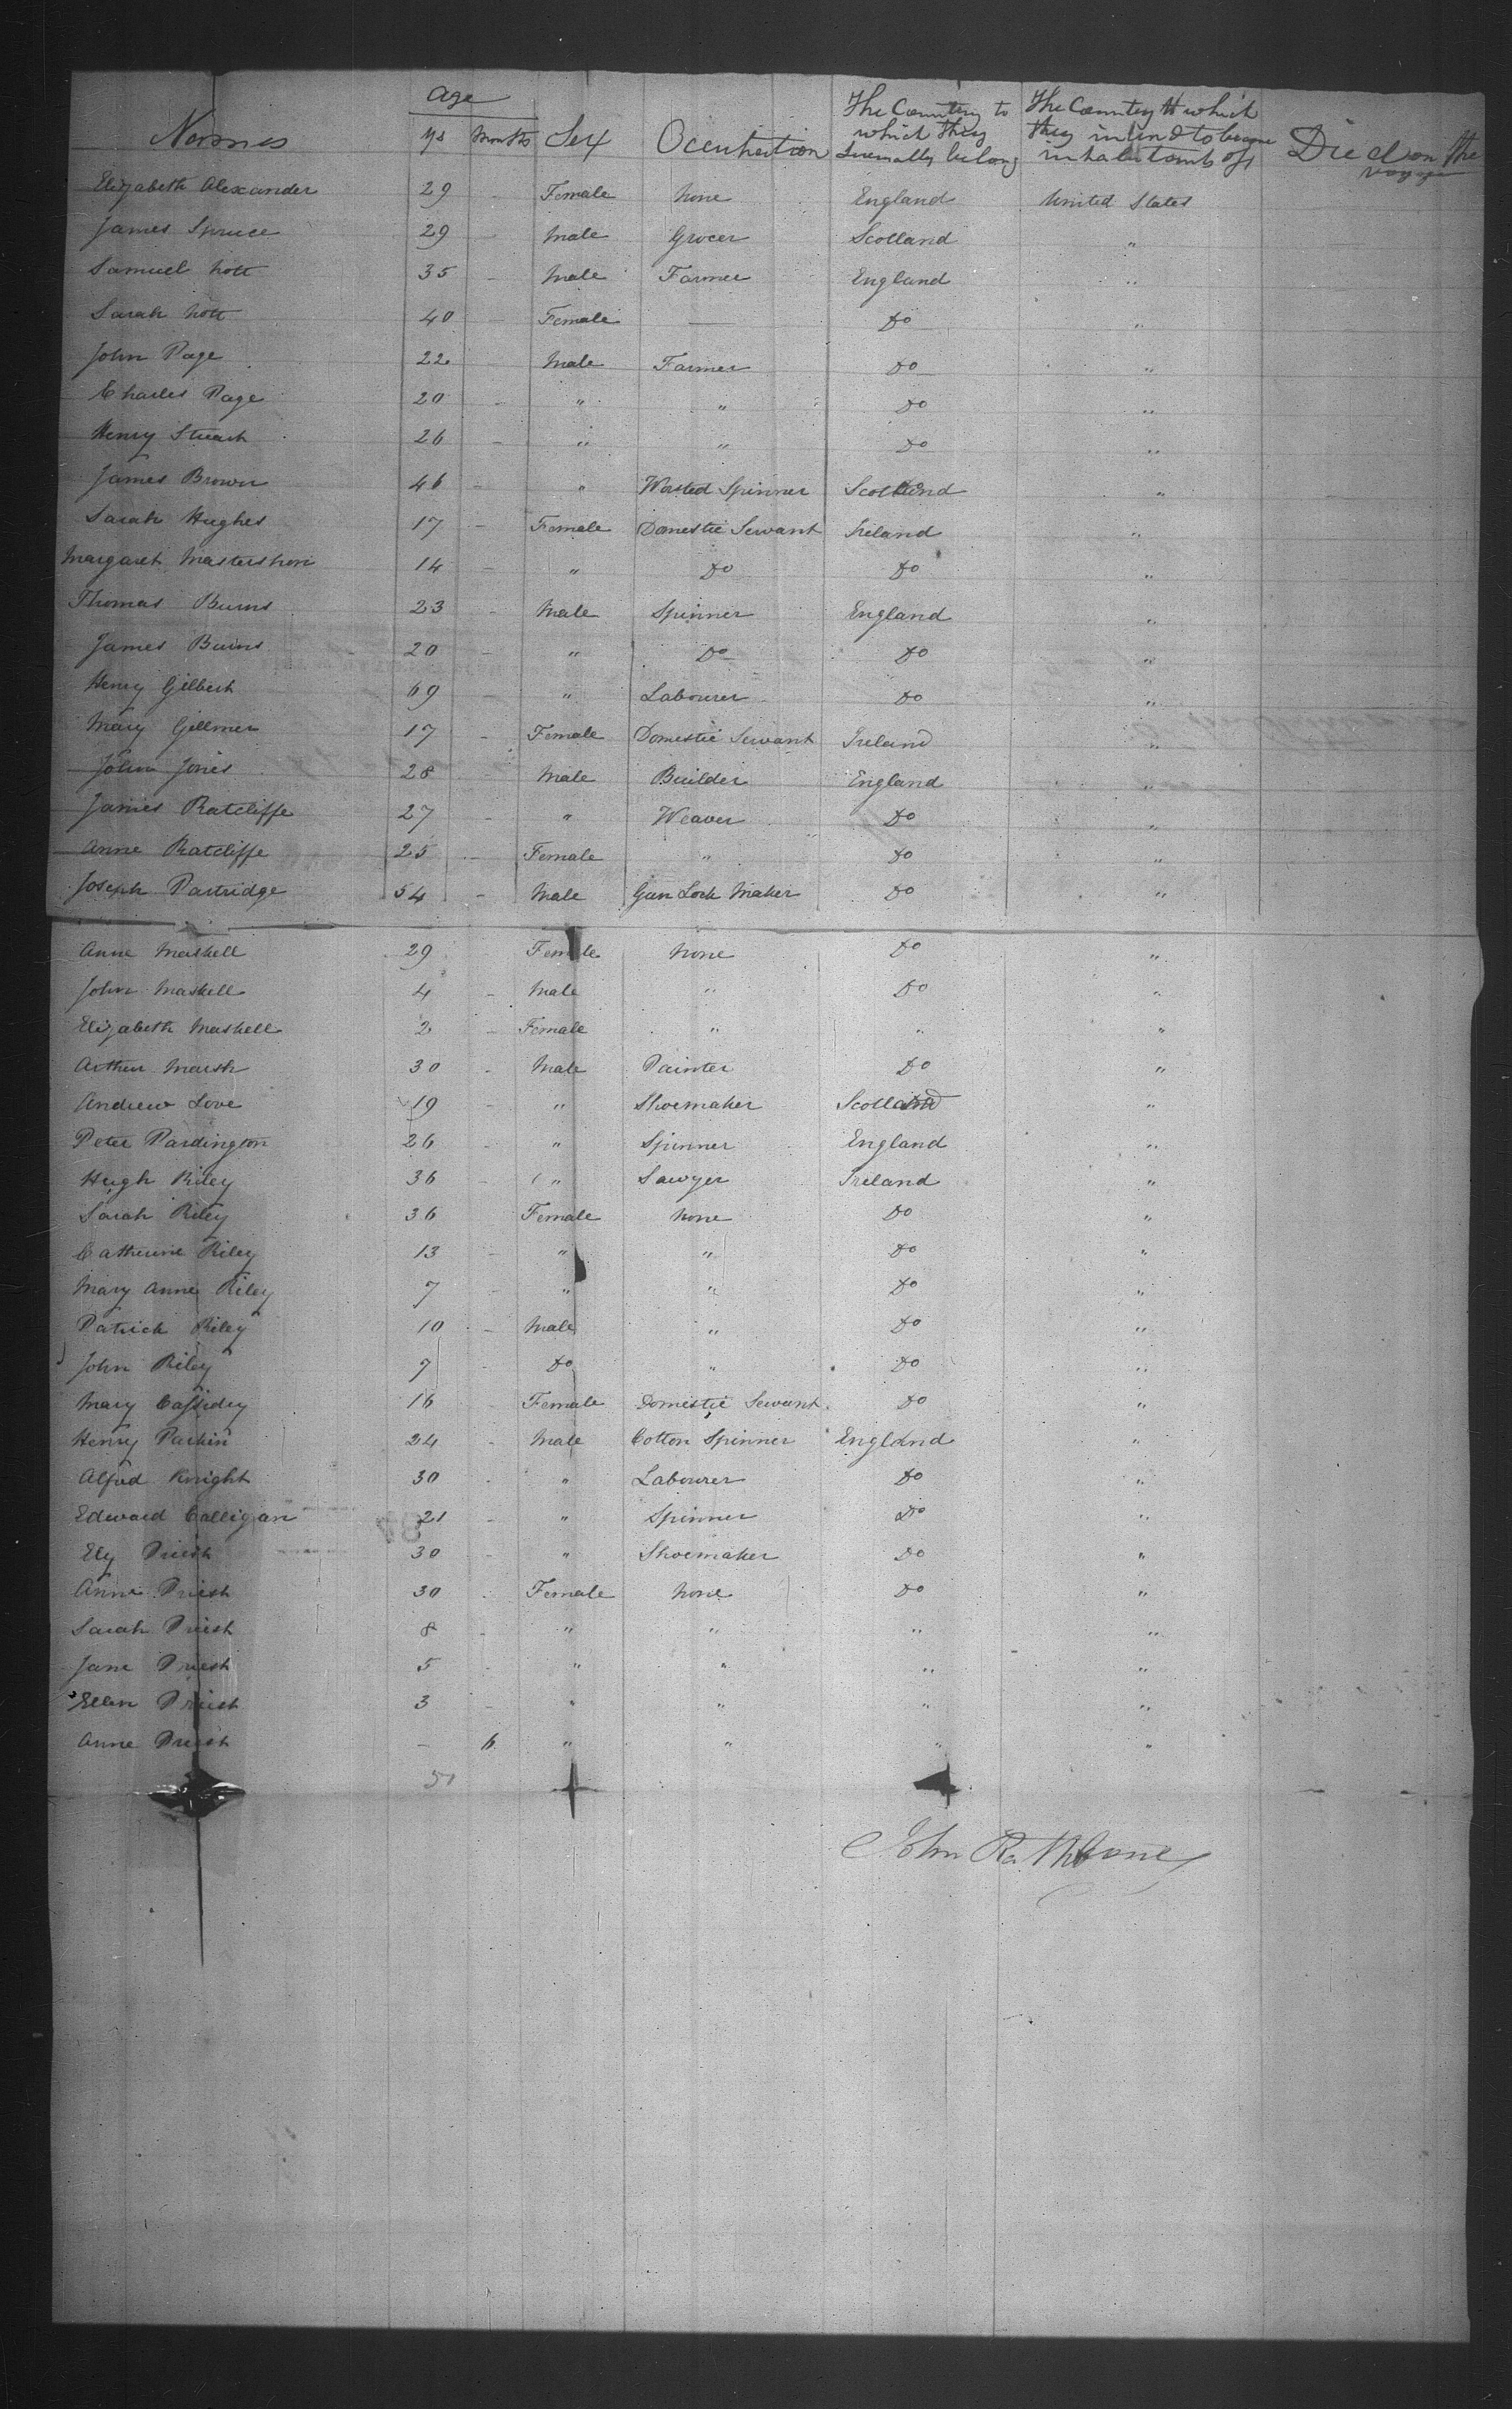 Names Age Ys Months Sex Occupation The Country to which they severally belong The Country to which they intend to become inhabitants of Died on the voyage
Elizabeth Alexander 29 - Female None England United States
James Spruce 29 - Male Grocer Scotland "
Samuel Nott 35 - Male Farmer England "
Sarah Nott 40 - Female — Do "
John Page 22 - Male Farmer Do "
Charles Page 20 - " " Do "
Henry Stuart 26 - " " Do "
James Brown 46 - " Wosted Spinner Scotland "
Sarah Hughes 17 - Female Domestic Servant Ireland "
Margaret Mastershon 14 - " Do Do "
Thomas Burns 23 - Male Spinner England "
James Burns 20 - " Do Do "
Henry Gilbert 69 - " Labourer Do "
Mary Gillmer 17 - Female Domestic Servant Ireland "
John Jones 28 - Male Builder England "
James Ratcliffe 27 - " Weaver Do "
Anne Ratcliffe 25 - Female " Do "
Joseph Partridge 54 - Male Gun Lock Maker Do "
Anne Maskell 29 Female None Do "
John Maskell 4 - Male " Do "
Elizabeth Maskell 2 - Female " " "
Arthur Marsh 30 - Male Painter Do "
Andrew Love 19 - " Shoemaker Scotland "
Peter Pardington 26 - " Spinner England "
Hugh Riley 36 - " Sawyer Ireland "
Sarah Riley 36 Female None Do "
Catherine Riley 13 - " " Do "
Mary Anne Riley 7 - " " Do "
Patrick Riley 10 - Male " Do "
John Riley 7 - Do " Do "
Mary Cassidy 16 - Female Domestic Servant Do "
Henry Parkin 24 - Male Cotton Spinner England "
Alfred Knight 30 - " Labourer Do "
Edward Calligan 21 - " Spinner Do "
Ely Priest 30 - " Shoemaker Do "
Anne Priest 30 - Female None Do "
Sarah Priest 8 - " " " "
Jane Priest 5 - " " " "
Ellen Priest 3 - " " " "
Anne Priest - 6 " " " "
John Rathbone